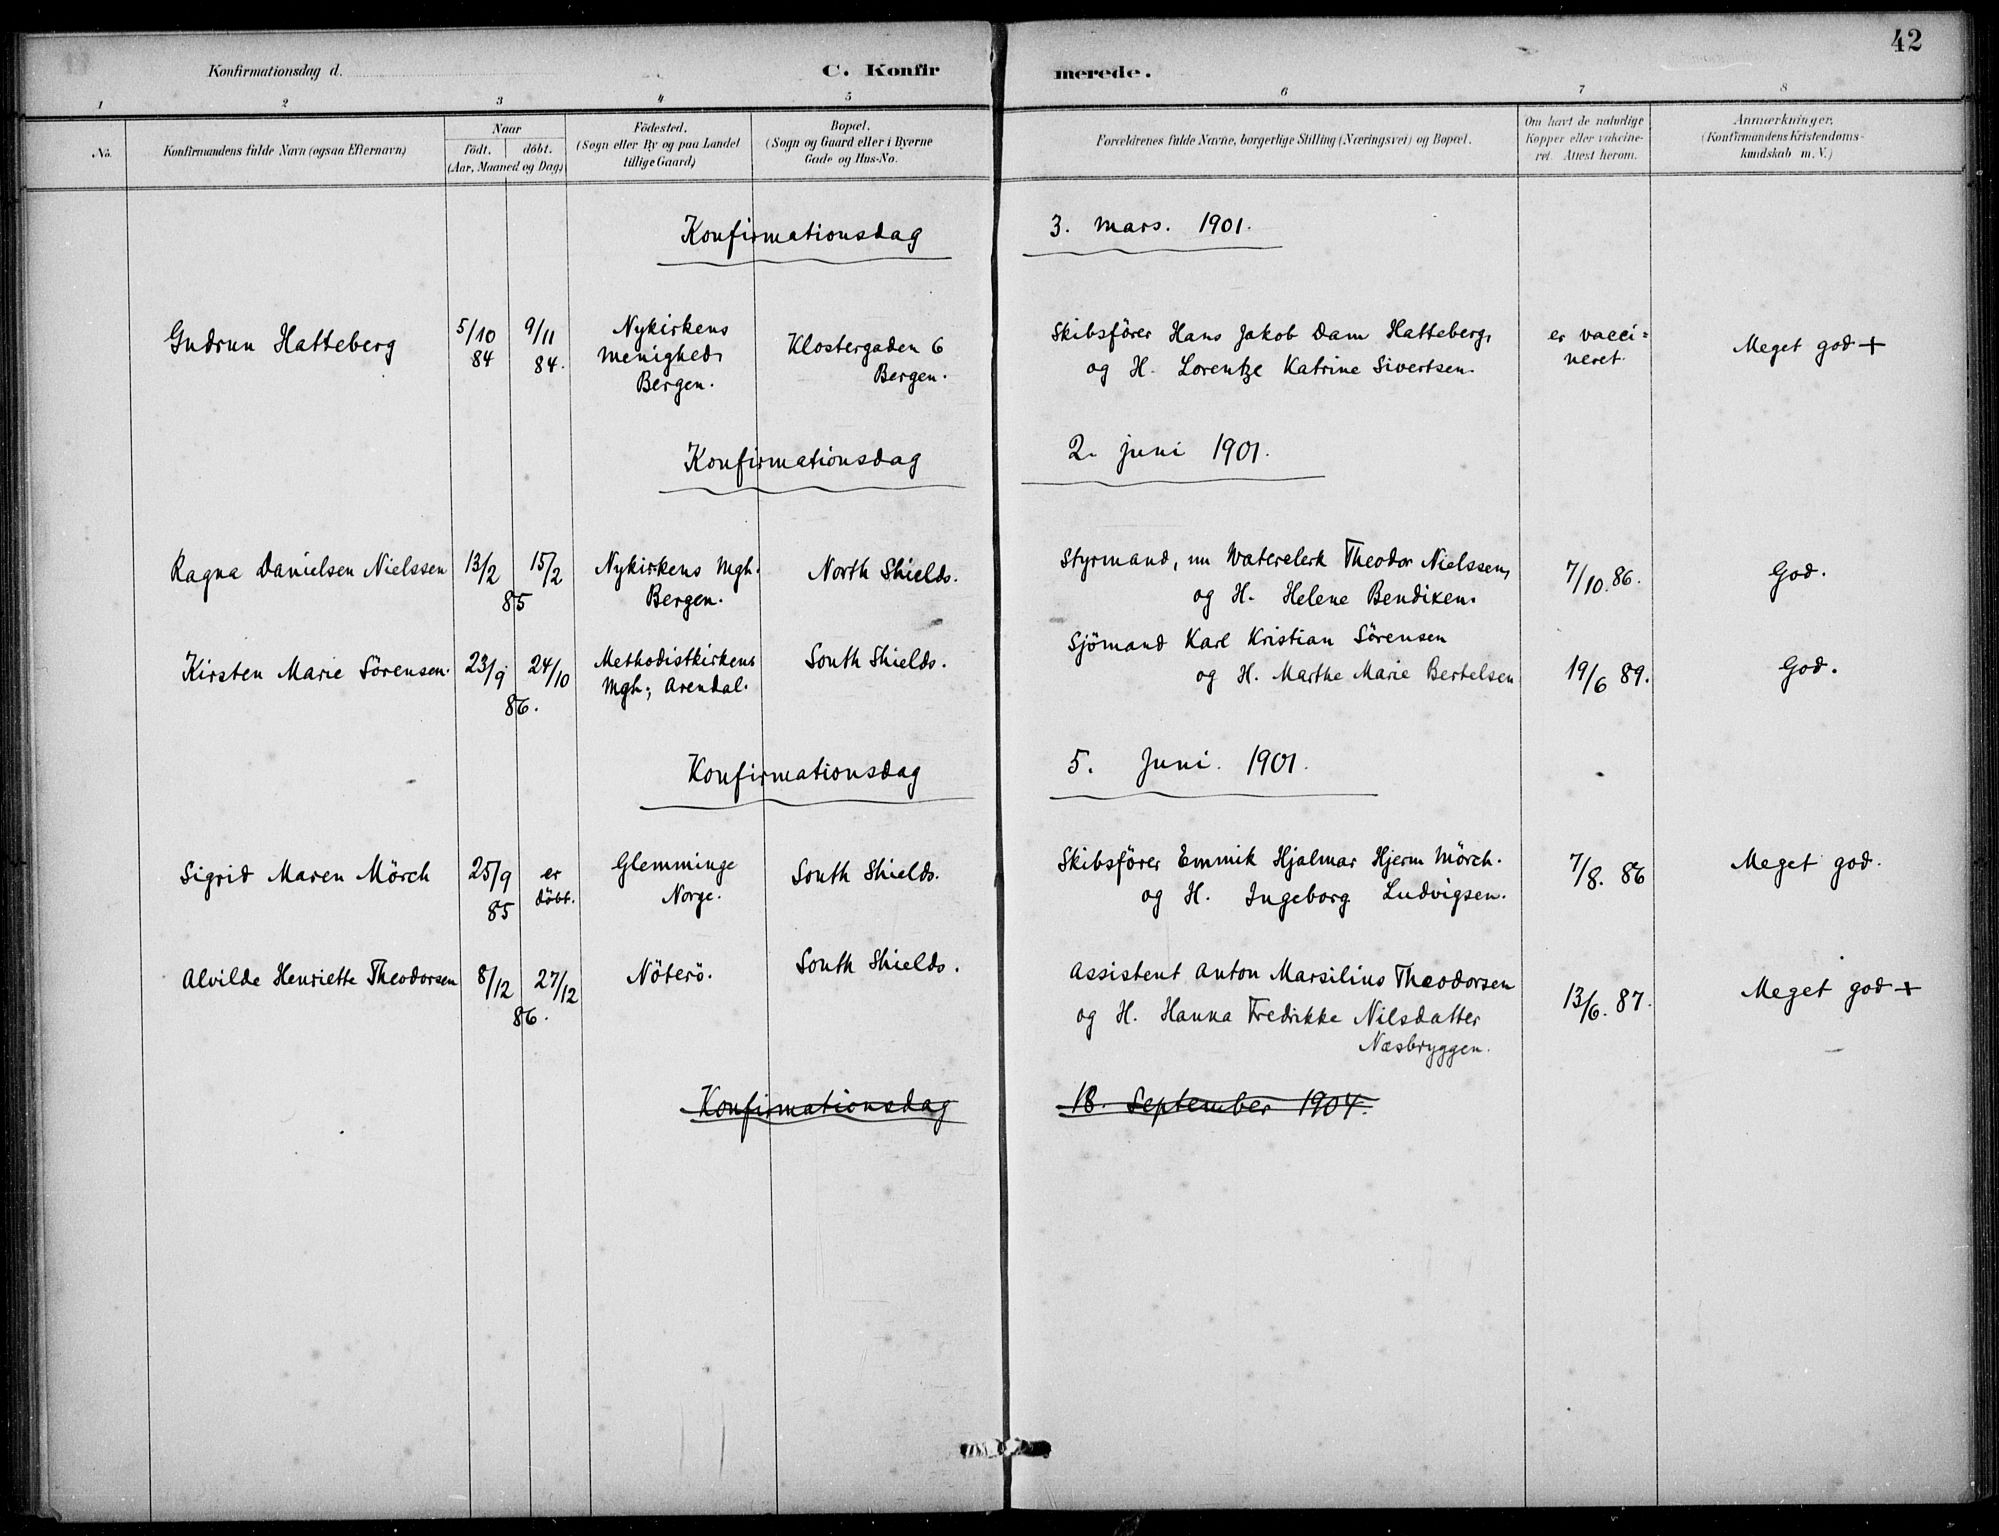 42
Konfirmationsdag d.
C. Konfirmerede.
1 2 3 4 5 6 7 8
No.
Konfirmandens fulde Navn (ogsaa Efternavn)
Naar
Födt. döbt.
(Aar, Maaned og Dag)
Födested.
(Sogn eller By og paa Landet
tillige Gaard)
Bopæl.
(Sogn og Gaard eller i Byerne
Gade og Hus-No.
Forældrenes fulde Navne, borgerlige Stilling (Næringsvei) og Bopæl.
Om havt de naturlige
Kopper eller vakcine-
ret. Attest herom.
Anmærkninger.
(Konfirmandens Kristendoms-
kundskab m. V.)
Konfirmationsdag 3. Mars. 1901.
Gudrun Hatteberg
5/10
84
9/11
84.
Nykirkens
menigheds
Bergen.
Klostergaden 6
Bergen.
Skibsförer Hans Jakob Dam Hatteberg,
og H. Lorentze Katrine Sivertsen.
er vacci=
neret.
Meget god +
Konfirmationsdag 2. juni 1901.
Ragna Danielsen Nielssen
13/2 15/2
85
Nykirkens Mgh.
Bergen.
North Shields.
Styrmand, nu Waterclerk Theodor Nielssen,
og H. Helene Bendixen.
7/10. 86.
God.
Kirsten Marie Sörensen.
23/9 24/10
86.
Methodistkirkens
Mgh; Arendal.
South Shields.
Sjömand Karl Kristian Sörensen
og H. Marthe Marie Bertelsen
19/6 89.
God.
Konfirmationsdag 5. Juni. 1901.
Sigrid Maren Mörch
25/9
85
er
döbt.
Glemminge
Norge.
South Shields.
Skibsförer Emmik Hjalmar Hjerm Mörch.
og H. Ingeborg Ludvigsen.
7/8. 86
Meget god.
Alvilde Henriette Theodorsen
8/12 27/12
86.
Nöterö.
South Shields.
Assistent Anton Marsilius Theodorsen
og H. Hanna Fredrikke Nilsdatter
Næsbryggen.
13/6. 87.
Meget god +
Konfirmationsdag 18. September 1904.